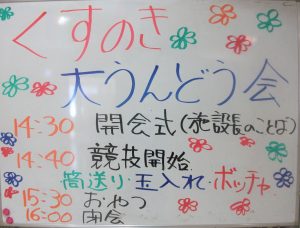 くすのき
大うんどう会
14:30 開会式(施設長のことば)
14:40 競技開始
筒送り・玉入れ・ボッチャ
15:30 おやつ
16:00 閉会